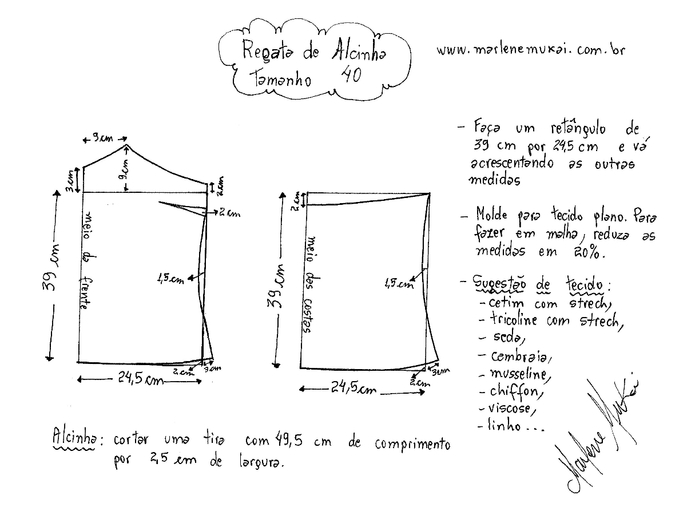 Regata de Alcinha
Tamanho 40
www.marlenemukai.com.br
9 cm
3 cm
9 cm
2 cm
2 cm
39 cm
meio da frente
1,5 cm
2 cm
3 cm
24,5 cm
2 cm
39 cm
meio das costas
1,5 cm
2 cm
3 cm
24,5 cm
- Faça um retângulo de
39 cm por 24,5 cm e vá
acrescentando as outras
medidas
- Molde para tecido plano. Para
fazer em malha, reduza as
medidas em 20%.
- Sugestão de tecido:
- cetim com strech,
- tricoline com strech,
- seda,
- cambraia,
- musseline,
- chiffon,
- viscose,
- linho...
Alcinha: cortar uma tira com 49,5 cm de comprimento
por 2,5 cm de largura.
Marlene Mukai